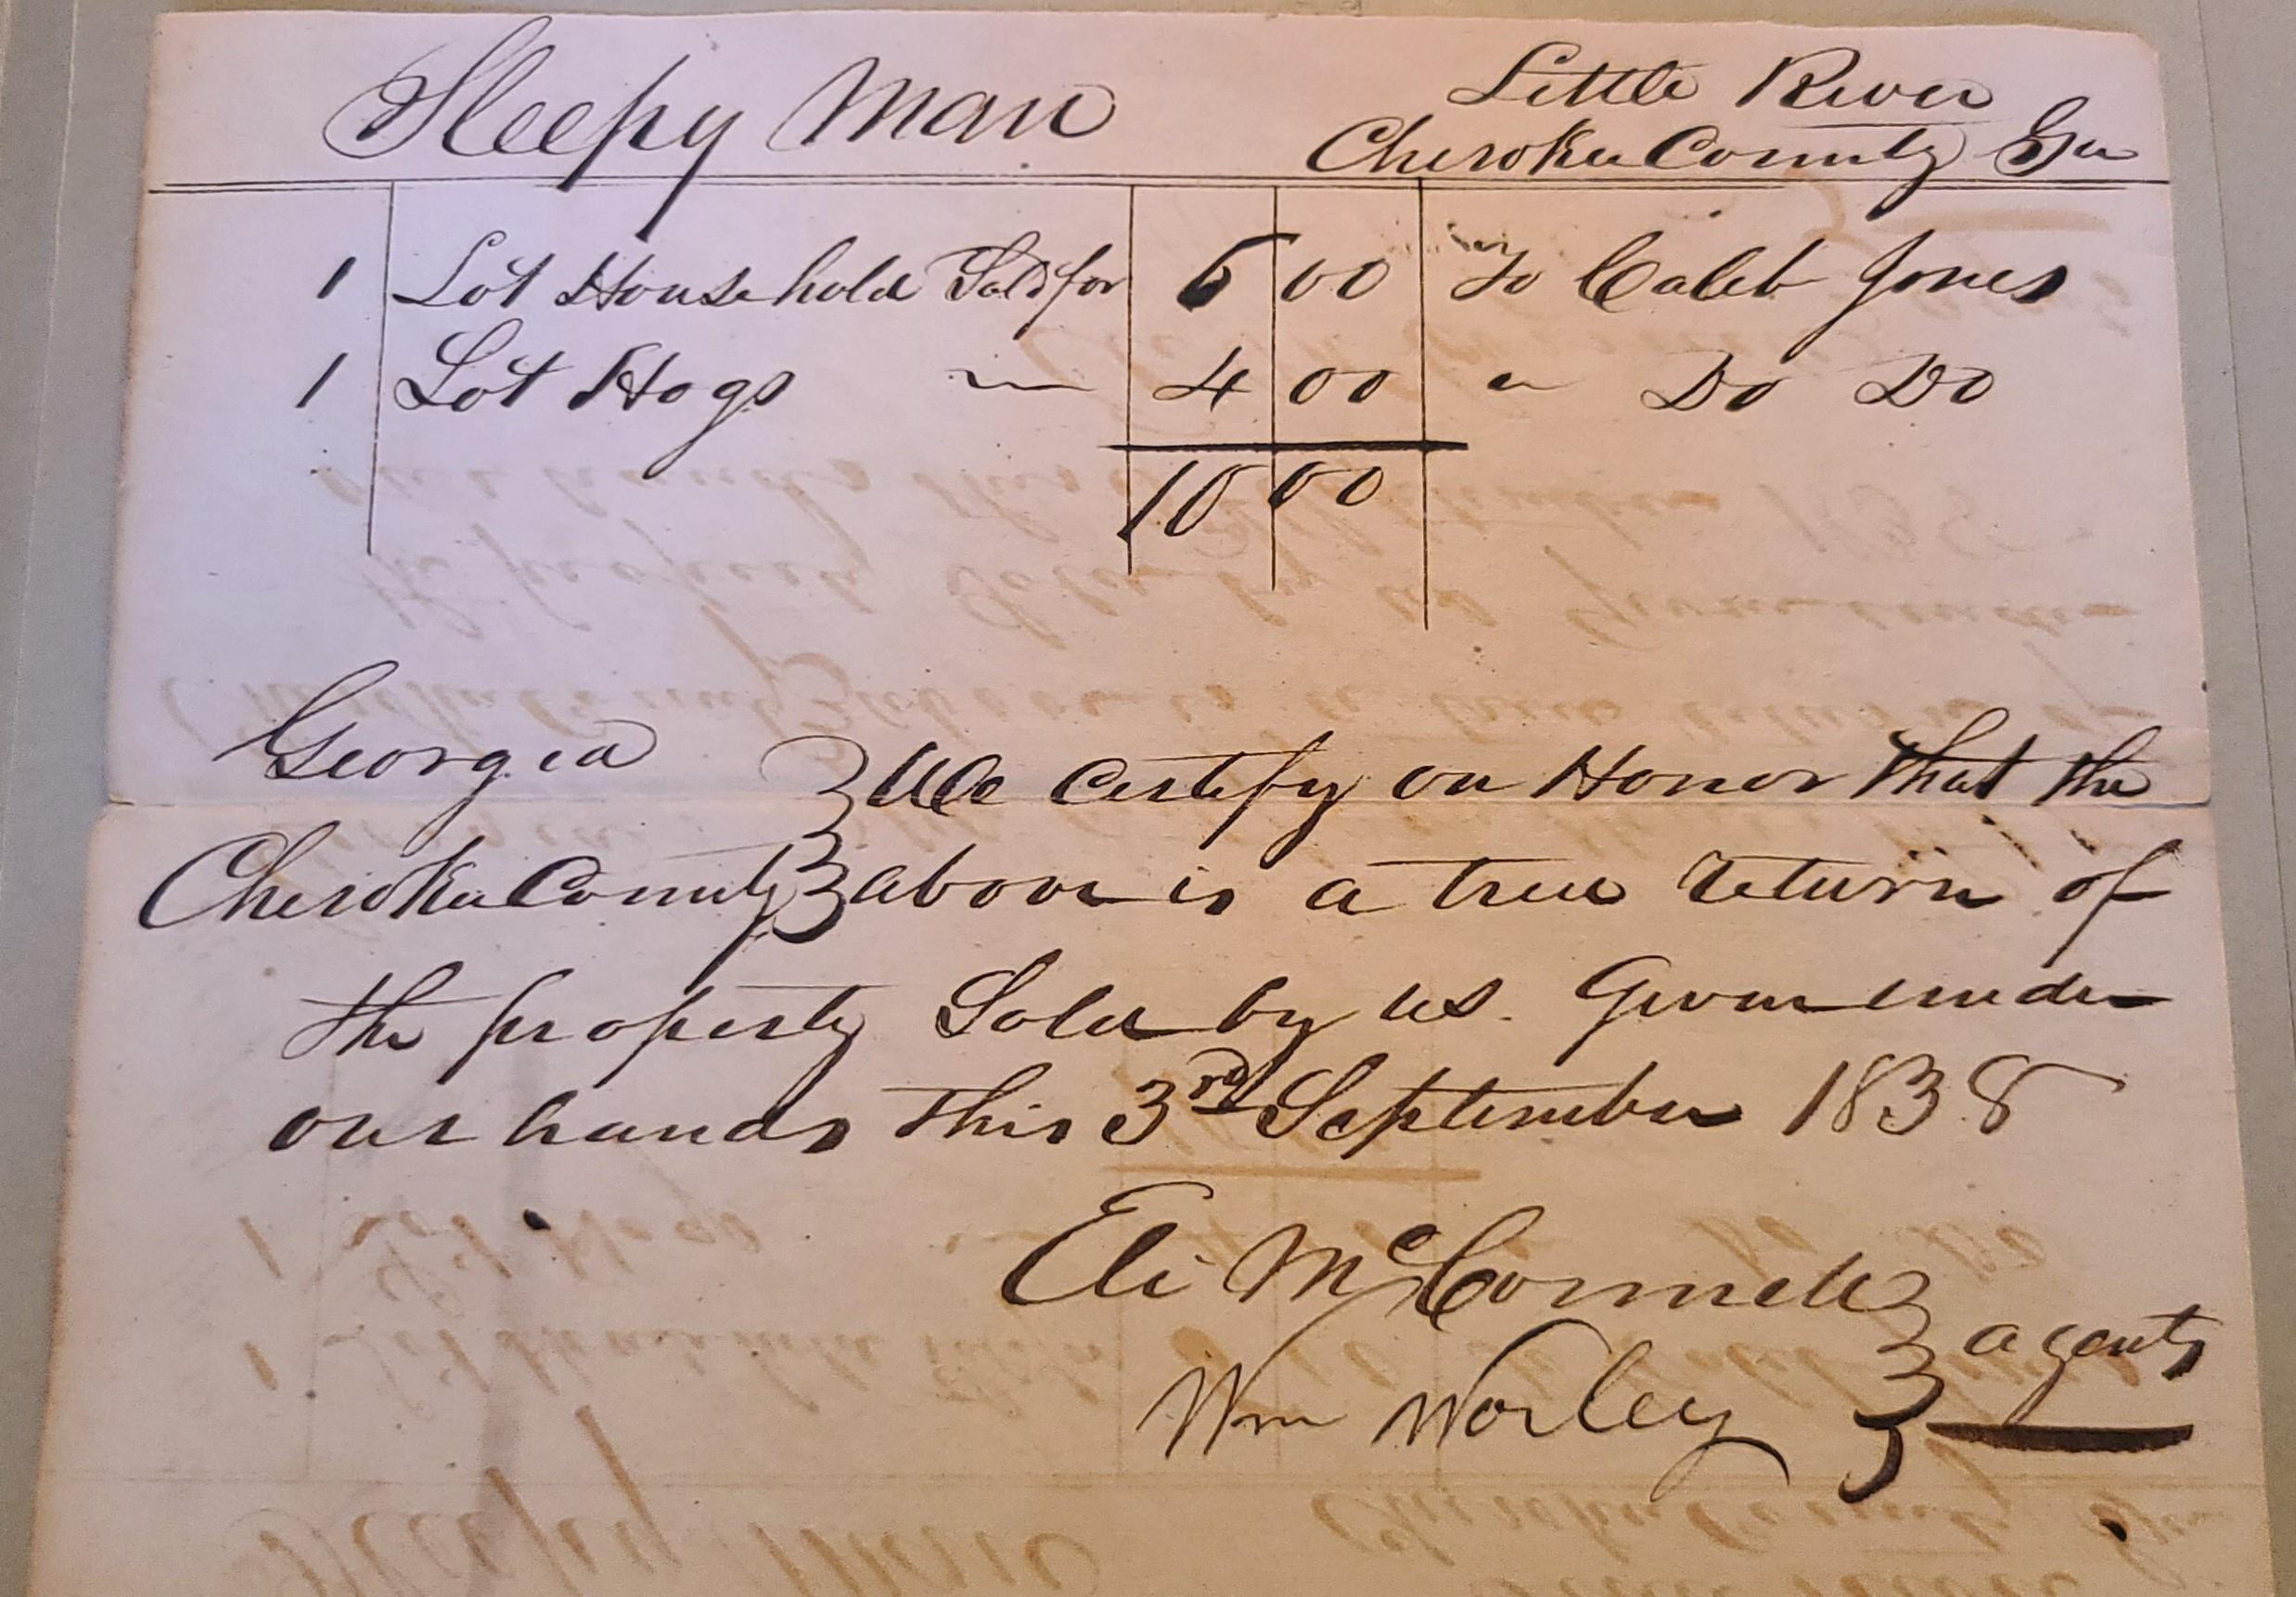 Sleepy Man
Little River
Cherokee County Ga
1 Lot Household Sold for 6 00 to Caleb Jones
1 Lot Hogs — 4 00 " Do Do
10 00
Georgia
Cherokee County
We Certify on Honor that the
above is a true return of
the property Sold by us. Given under
our hands this 3rd September 1838
Eli McConnell
Wm Worley
agents